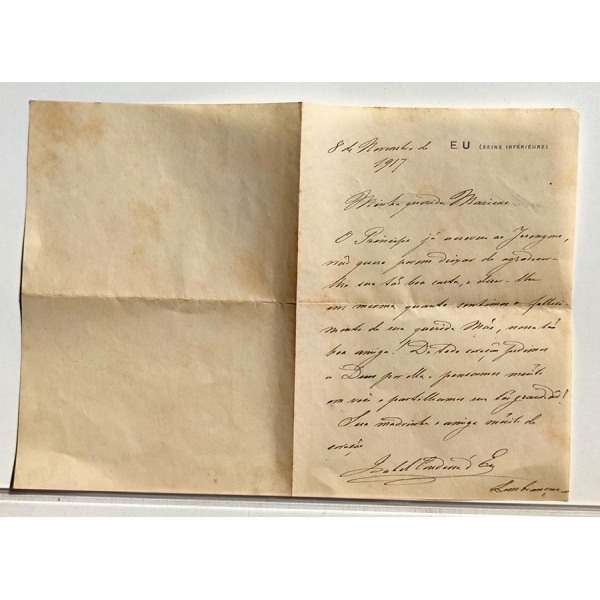 EU (SEINE INFÉRIEURE)
8 de Novembro de
1917
Minha querida Maricas
O Principe já escreveu ao Jeronymo,
não quero porem deixar de agradecer-
lhe sua tão boa carta, e dizer-lhe
eu mesma quanto sentimos o falleci-
mento de sua querida Mãe, nossa tão
boa amiga! De todo coração pedimos
a Deus por ella e pensamos muito
em você e partilhamos sua dor
Sua madrinha e amiga muito de
coração
Isabel Condessa d'Eu
Lembranças